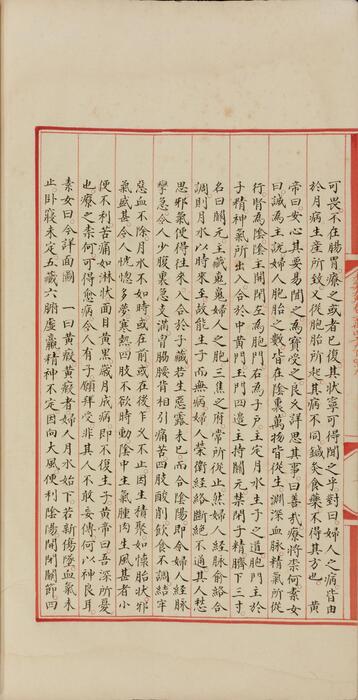 可畏不在腸胃療之或者已復其狀寧可得聞之乎對曰婦人之病皆由
於月病生產所致又從胞胎所起其病不同鍼灸食藥不得其方也　黃
帝曰安心其要易聞之為寳受之良久詳思其事曰善哉療將柰何素女
曰誠為主說婦人胞胎之數皆在陰裏萬物皆從生淵深血脉精氣所從
行腎為陰陰主開閉左為胞門右為子戶主定月水主子之道胞門主於
子精神氣所出入合於中黃門玉門四邊主持關元禁閉子精臍下三寸
名曰關元主藏䰟魄婦人之胞三焦之府常所從止然婦人經脉俞絡合
調則月水以時來主故能生子而無病婦人榮衛經絡斷絕不通其人愁
思邪氣便得往來入合於子藏若生惡露未已而合陰陽即令婦人經脉
攣急令人少腹裏急支滿胷脇腰背相引痛苦四肢酸削飲食不調結牢
惡血不除月水不如時或在前或在後乍乂不止因生積聚如懷胎狀邪
氣盛甚令人恍惚多夢寒熱四肢不欲時動陰中生氣腫肉生風甚者小
便不利苦痛如淋狀面目黃黑歲月成病即不復生子黃帝曰吾深所憂
也療之柰何可得愈病令人有子願拜受非其人不敢妄傳何以神良耳
素女曰今詳面圖　一曰黃瘕黃瘕者婦人月水始下若新傷墮血氣未
止卧寢未定五藏六腑虛羸精神不定因向大風便利陰陽開閉關節四